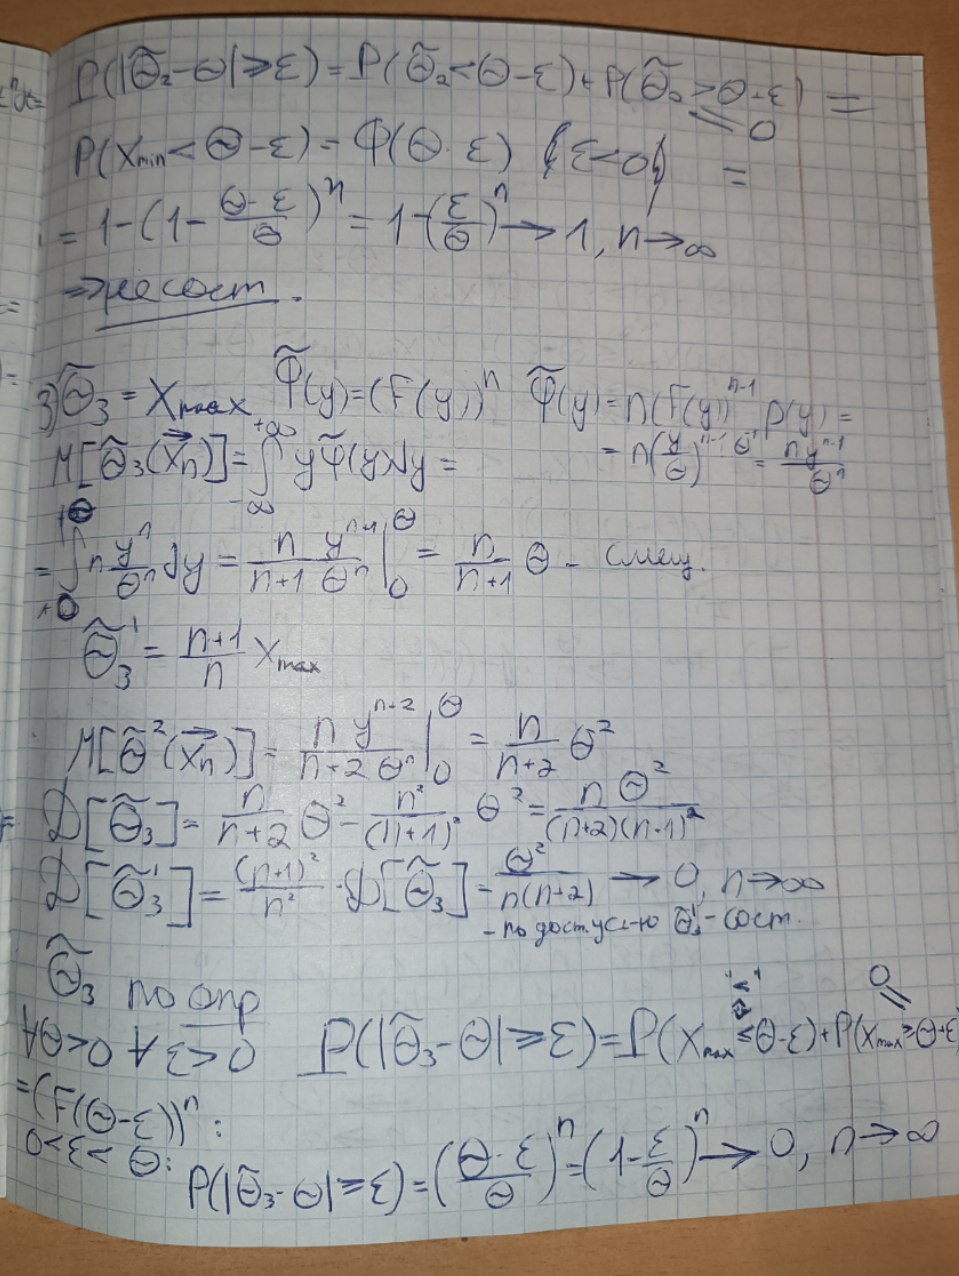 P(|Θ̃₂-Θ|⩾ε) = P(Θ̃₂<Θ-ε)+P(Θ̃₂>Θ+ε) =
=0
P(Xmin<Θ-ε) = Φ(Θ-ε) {ε<Θ} =
= 1-(1-(Θ-ε)/Θ)ⁿ = 1-(ε/Θ)ⁿ → 1, n→∞
⇒ не сост.
3) Θ̃₃ = Xmax Φ̃(y)=(F(y))ⁿ φ̃(y)=n(F(y))ⁿ⁻¹ p(y) =
= n(y/Θ)ⁿ⁻¹ · Θ⁻¹ = nyⁿ⁻¹/Θⁿ
M[Θ̃₃(X⃗n)] = ∫_{-∞}^{+∞} yφ̃(y)dy =
= ∫_{0}^{Θ} n yⁿ/Θⁿ dy = n/(n+1) yⁿ⁺¹/Θⁿ |₀^Θ = n/(n+1) Θ - смещ.
Θ̃₃' = (n+1)/n Xmax
M[Θ̃²(X⃗n)] = n yⁿ⁺²/(n+2 Θⁿ) |₀^Θ = n/(n+2) Θ²
D[Θ̃₃] = n/(n+2) Θ² - n²/(n+1)² Θ² = nΘ²/((n+2)(n+1)²)
D[Θ̃₃'] = (n+1)²/n² · D[Θ̃₃] = Θ²/(n(n+2)) → 0, n→∞
- по дост усл-ю Θ̃₃' - сост.
Θ̃₃ по опр
∀Θ>0 ∀ε>0 P(|Θ̃₃-Θ|⩾ε)=P(Xmax⩽Θ-ε)+P(Xmax⩾Θ+ε)
=0
=(F(Θ-ε))ⁿ:
0<ε<Θ:
P(|Θ̃₃-Θ|⩾ε) = ((Θ-ε)/Θ)ⁿ = (1-ε/Θ)ⁿ → 0, n→∞